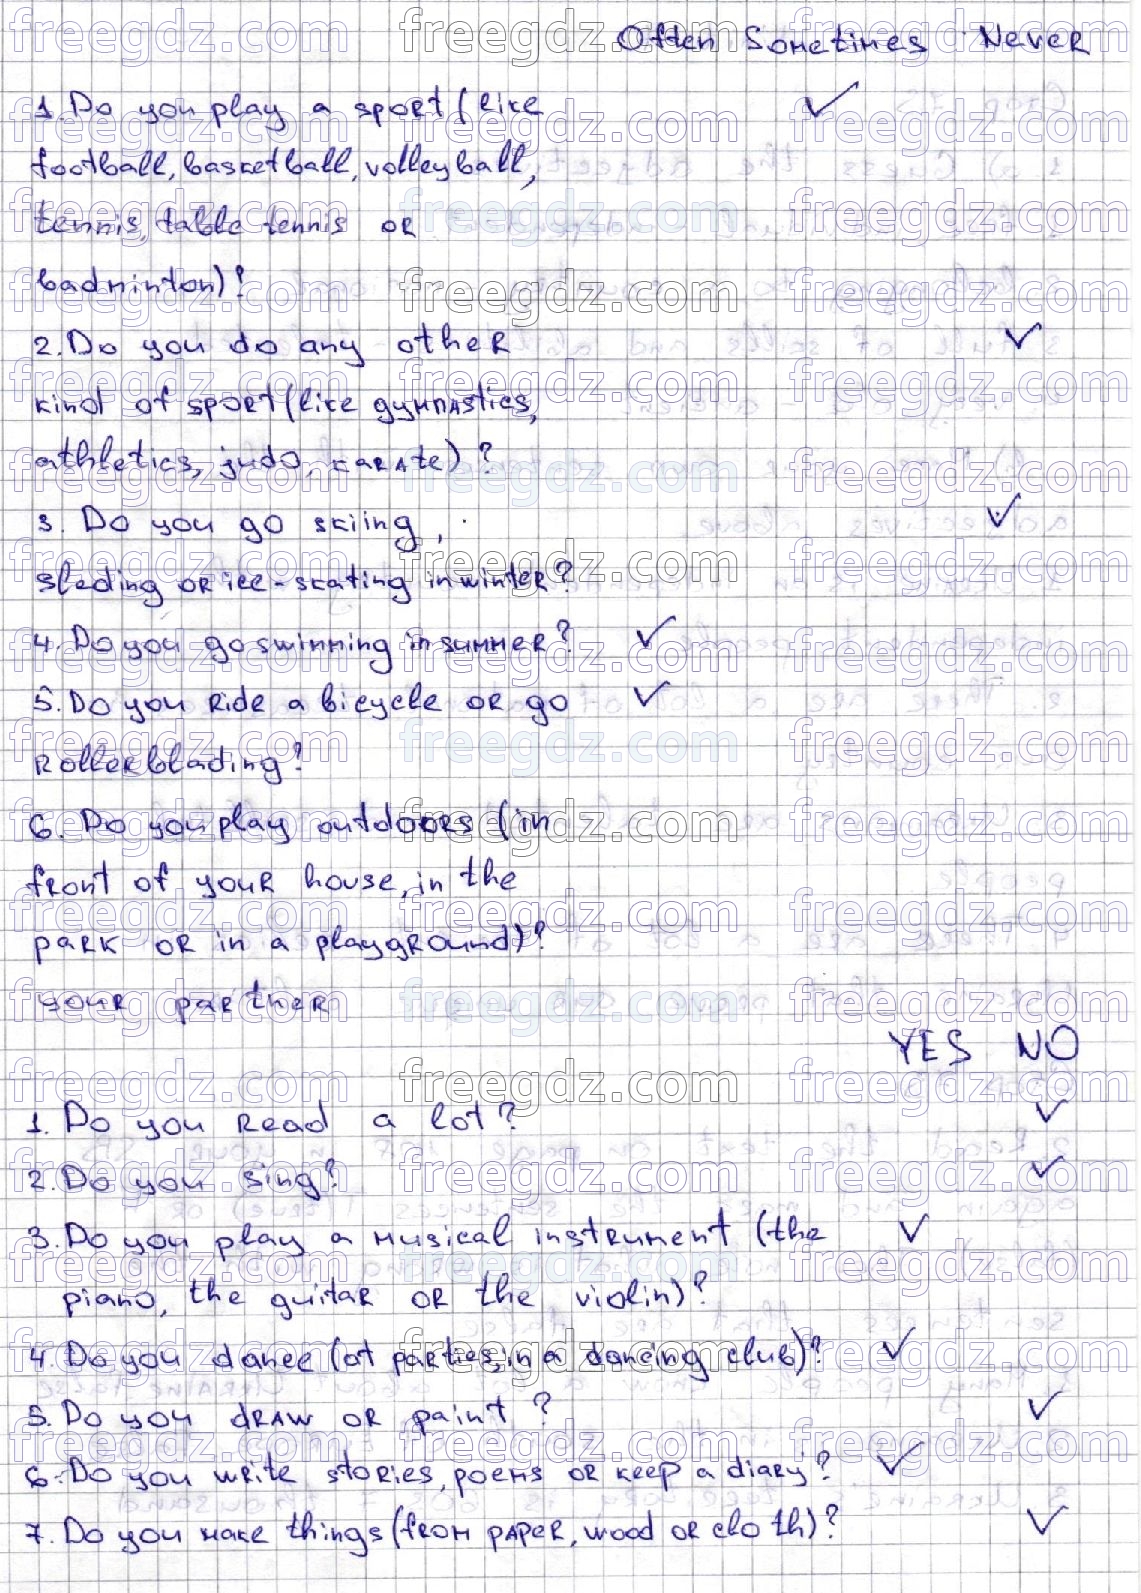 Often Sometimes Never
1. Do you play a sport (like ✓
football, basketball, volleyball,
tennis, table tennis or
badminton)?
2. Do you do any other ✓
kind of sport (like gymnastics,
athletics, judo, karate)?
3. Do you go skiing, ✓
sleding or ice-skating in winter?
4. Do you go swimming in summer? ✓
5. Do you ride a bicycle or go ✓
rollerblading?
6. Do you play outdoors (in
front of your house, in the
park or in a playground)?
your partner
YES NO
1. Do you read a lot? ✓
2. Do you sing? ✓
3. Do you play a musical instrument (the ✓
piano, the guitar or the violin)?
4. Do you dance (at parties, in a dancing club)? ✓
5. Do you draw or paint? ✓
6. Do you write stories, poems or keep a diary? ✓
7. Do you make things (from paper, wood or cloth)? ✓
freegdz.com